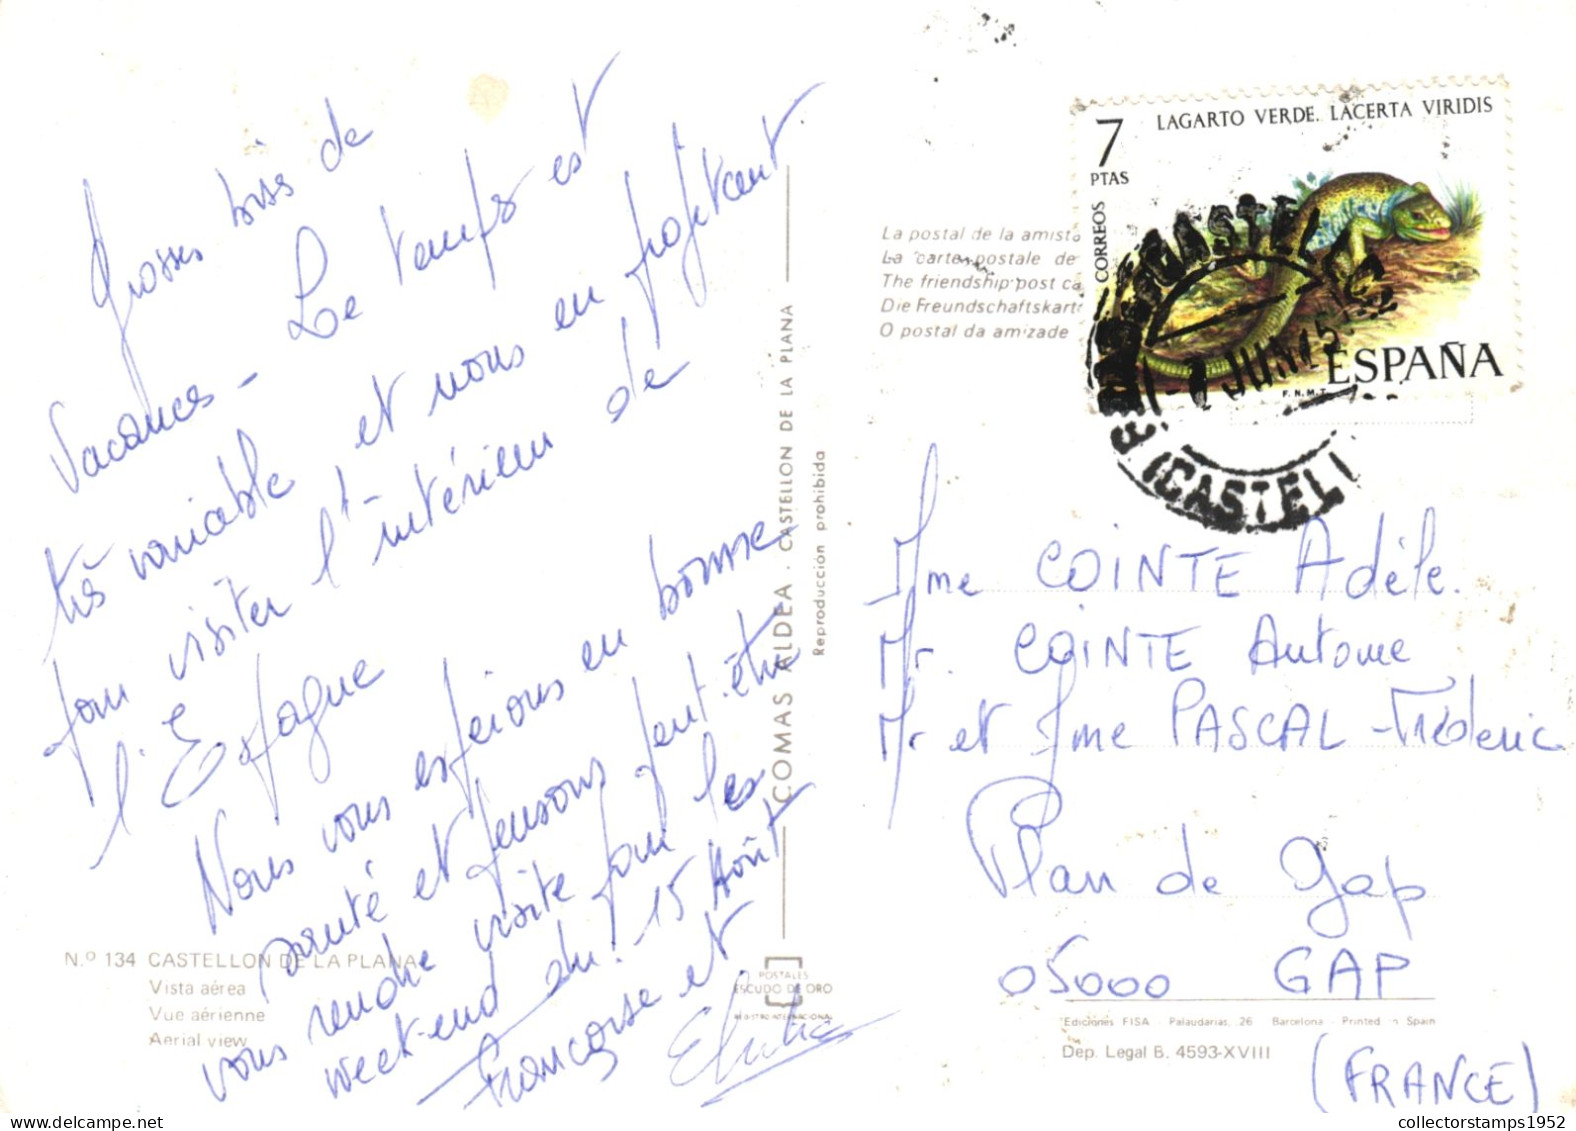 Grosses bises de
vacances - Le temps est
très variable et nous en profitant
pour visiter l'intérieur de
l'Espagne
Nous vous espérons en bonne
santé et pensons peut-être
vous rendre visite pour les
week-end du 15 Août
Françoise et
N.º 134 CASTELLON DE LA PLANA
Vista aérea
Vue aérienne
Aerial view
COMAS ALDEA · CASTELLON DE LA PLANA
Reproducción prohibida
POSTALES
ESCUDO DE ORO
REGISTRO INTERNACIONAL
La postal de la amista
La carte postale de
The friendship post ca
Die Freundschaftskart
O postal da amizade
7
PTAS
LAGARTO VERDE. LACERTA VIRIDIS
CORREOS
ESPAÑA
F.N.M.T.
JUN 75
(CASTEL
Mme COINTE Adèle.
Mr. COINTE Antoine
Mr et Mme PASCAL-Fréderic
Plan de Gap
05000 GAP
Ediciones FISA - Palaudarias, 26 Barcelona - Printed in Spain
Dep. Legal B. 4593-XVIII
(FRANCE)
collectorstamps1952